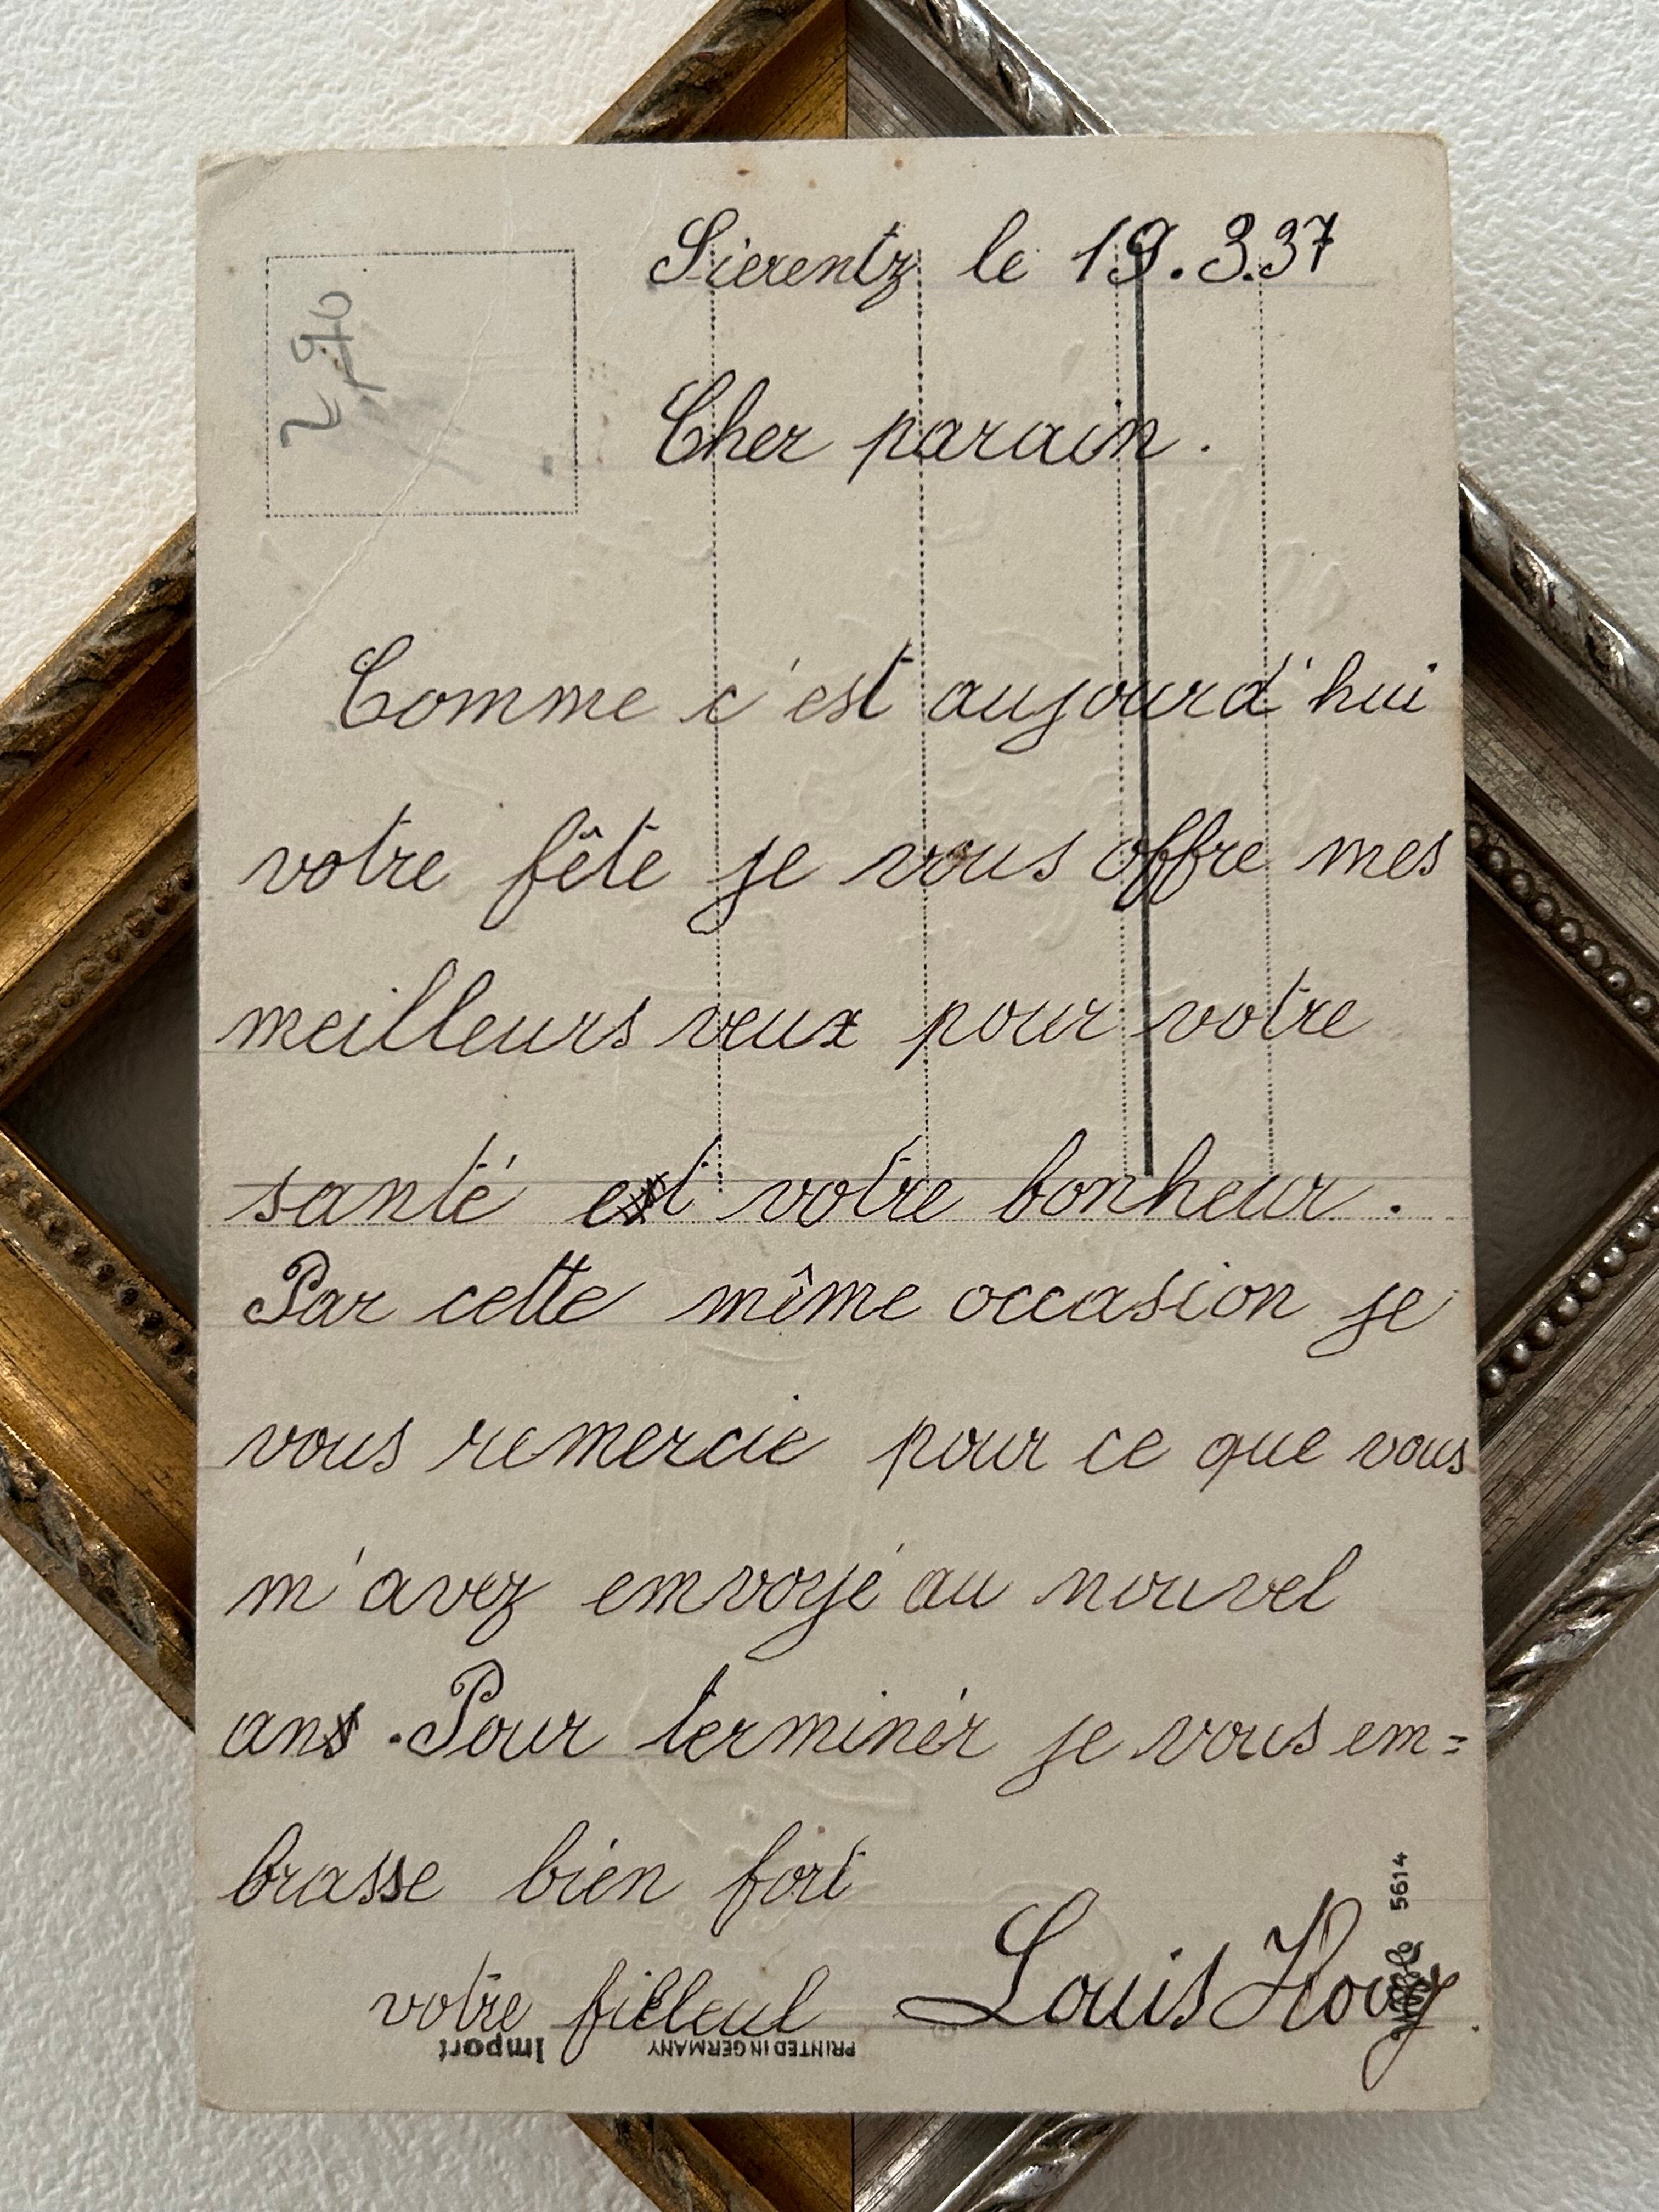 Sierentz le 19.3.37
Cher parain.
Comme c'est aujourd'hui
votre fête je vous offre mes
meilleurs veux pour votre
santé et votre bonheur.
Par cette même occasion je
vous remercie pour ce que vous
m'avez envoyé au nouvel
an. Pour terminér je vous em=
brasse bien fort
votre filleul Louis
Import
PRINTED IN GERMANY
5614